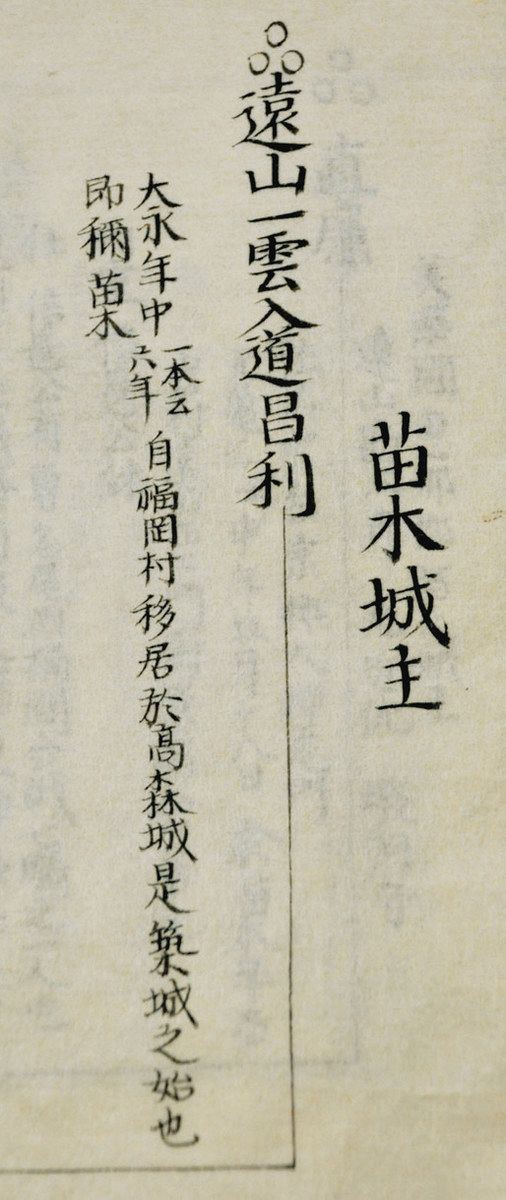 苗木城主
遠山一雲入道昌利
大永年中一本云六年自福岡村移居於髙森城是築城之始也
即稱苗木